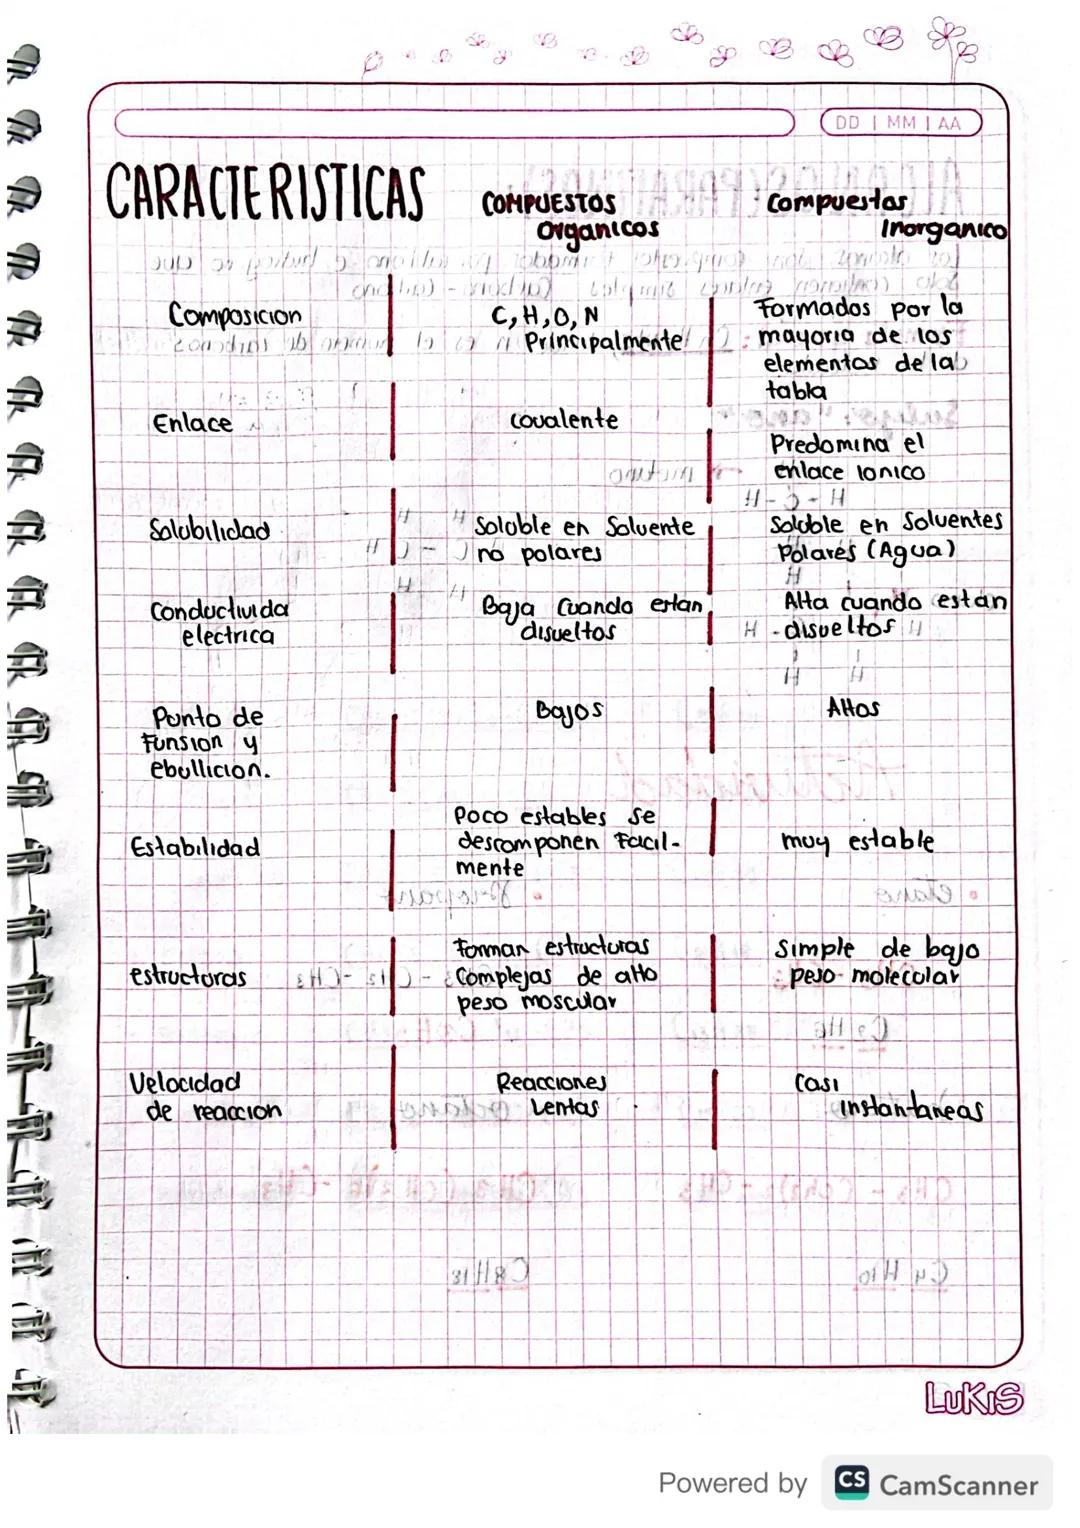 DD | MM | AA
CARACTERISTICAS
COMPUESTOS
Organicos
Compuestos
Inorganico
Composicion
C, H, O, N
Principalmente
Formados por la
mayoria de los
elementos de la
tabla
Enlace
Covalente
Predomina el
enlace Ionico
Solubilidad
Soluble en Solvente
no polares
Soluble en Solventes
Polares (Agua)
Conductivida
electrica
Baja Cuando estan
disueltos
Alta cuando están
disueltos
Punto de
Funsion y
ebullicion.
Bajos
Altos
Estabilidad
Poco estables se
descomponen Facil-
mente
muy estable
estructuras
Forman estructuras
Complejas de alto
peso moscular
Simple de bajo
peso molecular
Velocidad
de reaccion
Reacciones
Lentas
Casi
instantaneas
LUKIS
Powered by CS CamScanner